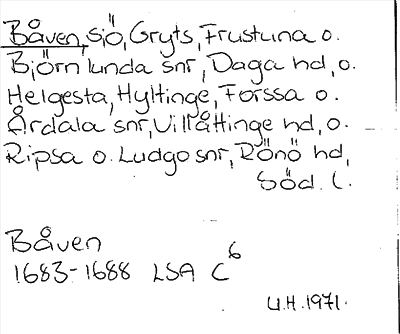 Båven, sjö, Gryts, Frustuna o.
Björnlunda snr, Daga hd, o.
Helgesta, Hyltinge, Forssa o.
Årdala snr, Villåttinge hd, o.
Ripsa o. Ludgo snr, Rönö hd,
Söd. l.
Båven
1683-1688 LSA C6
U.H. 1971.